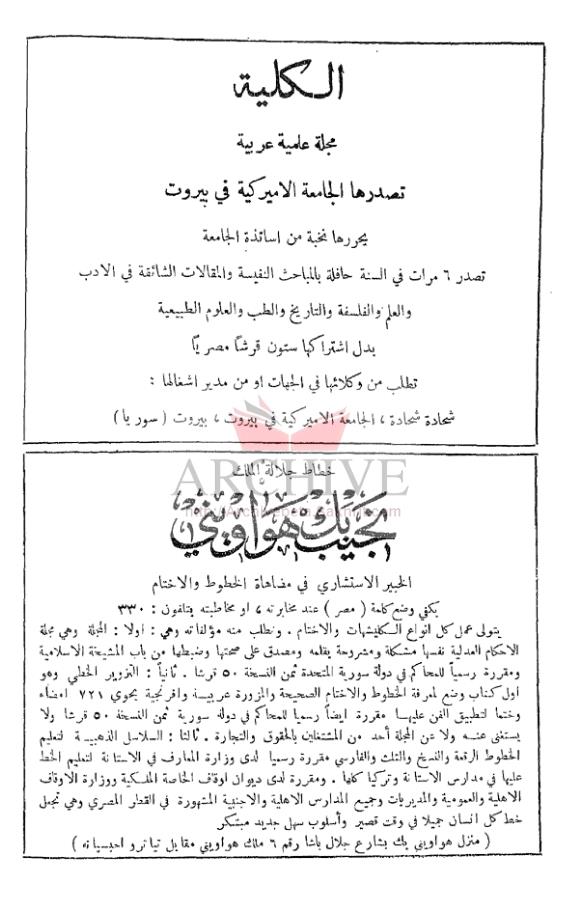 الكلية
مجلة علمية عربية
تصدرها الجامعة الاميركية في بيروت
يحررها نخبة من اساتذة الجامعة
تصدر ٦ مرات في السنة حافلة بالمباحث النفيسة والمقالات الشائقة في الادب
والعلم والفلسفة والتاريخ والطب والعلوم الطبيعية
بدل اشتراكها ستون قرشا مصريا
تطلب من وكلائها في الجهات او من مدير اشغالها :
شحادة شحادة ، الجامعة الاميركية في بيروت ، بيروت ( سوريا )
ARCHIVE
خطاط جلالة الملك
نجيب بك هواويني
الخبير الاستشاري في مضاهاة الخطوط والاختام
يكفي وضع كلمة ( مصر ) عند مخابرته ، او مخاطبته بتلفون : ٣٣٠
يتولى عمل كل انواع الكليشهات والاختام . وتطلب منه مؤلفاته وهي : اولا : المجلة وهي مجلة
الاحكام العدلية نفسها مشكلة ومشروحة بقلمه ومصدق على صحتها وضبطها من باب المشيخة الاسلامية
ومقررة رسمياً للمحاكم في دولة سورية المتحدة ثمن النسخة ٥٠ قرشا . ثانياً : التزوير الخطي وهو
اول كتاب وضع لمعرفة الخطوط والاختام الصحيحة والمزورة عربية وافرنجية يحوي ٧٢١ امضاء
وختما لتطبيق الفن عليها مقررة ايضاً رسميا للمحاكم في دولة سورية ثمن النسخة ٥٠ قرشا ولا
يستغنى عنه ولا عن المجلة أحد من المشتغلين بالحقوق والتجارة . ثالثا : السلاسل الذهبية لتعليم
الخطوط الرقعة والنسخ والثلث والفارسي مقررة رسميا لدى وزارة المعارف في الاستانة لتعليم الخط
عليها في مدارس الاستانة وتركيا كلها . ومقررة لدى ديوان اوقاف الخاصة الملكية ووزارة الاوقاف
الاهلية والعمومية والمديريات وجميع المدارس الاهلية والاجنبية المشهورة في القطر المصري وهي تجعل
خط كل انسان جميلا في وقت قصير وأسلوب سهل جديد مبتكر
( منزل هواويني بك بشارع جلال باشا رقم ٦ ملك هواويني مقابل تياترو )